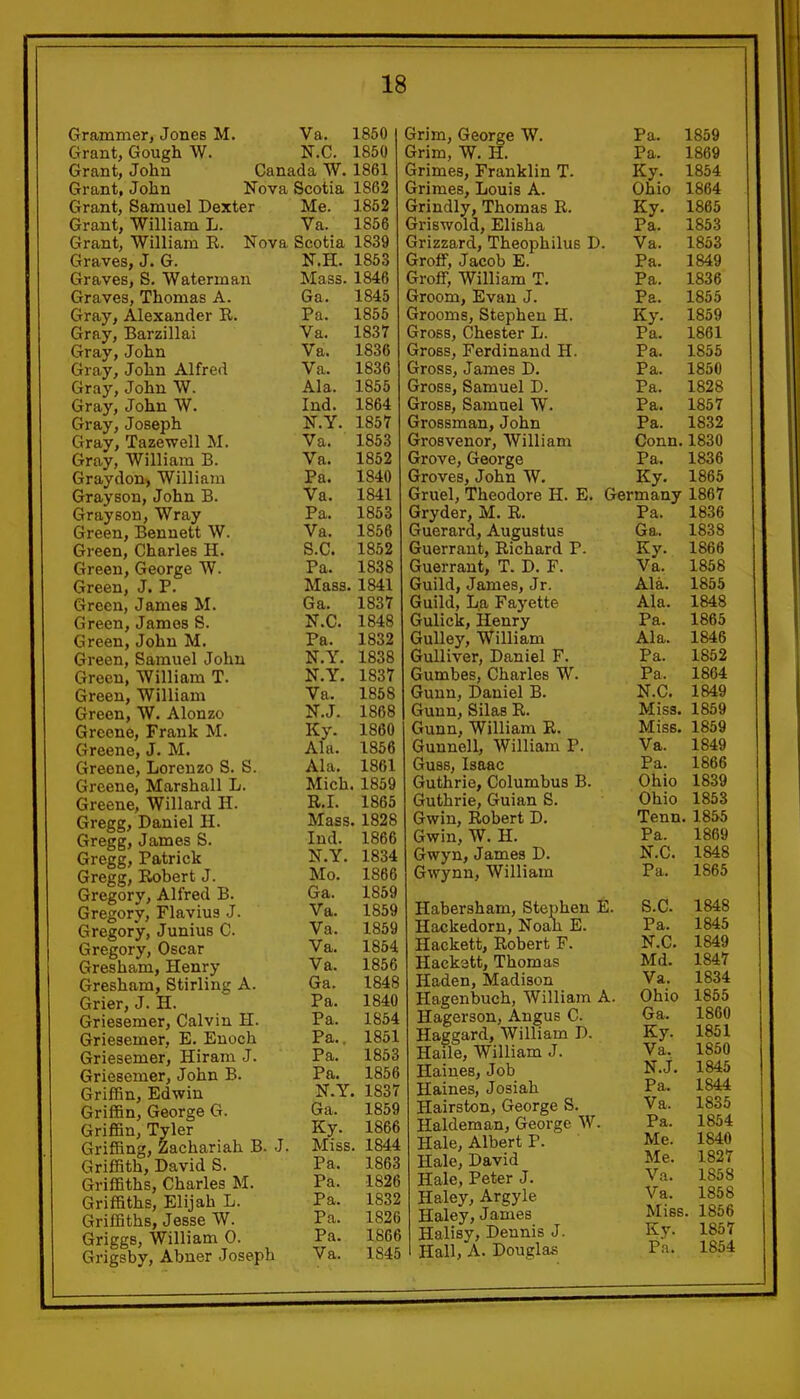 18
Grammer, Jones M. Va. 1850
Grant, Gough W. N.C. 1850
Grant, John Canada W. 1861
Grant, John Nova Scotia 1862
Grant, Samuel Dexter Me. 1852
Grant, William L. Va. 1856
Grant, William R. Nova Scotia 1839
Graves, J. G. N.H. 1853
Graves, S. Waterman Mass. 1846
Graves, Thomas A. Ga. 1845
Gray, Alexander R. Pa. 1855
Gray, Barzillai Va. 1837
Gray, John Va. 1836
Gray, John Alfred Va. 1836
Gray, John W. Ala. 1855
Gray, John W. Ind. 1864
Gray, Joseph N.Y. 1857
Gray, Tazewell M. Va. 1853
Gray, William B. Va. 1852
Graydon, William Pa. 1840
Grayson, John B. Va. 1841
Grayson, Wray Pa. 1853
Green, Bennett W. Va. 1856
Green, Charles H. S.C. 1852
Green, George W. Pa. 1838
Green, J. P. Mass. 1841
Green, James M. Ga. 1837
Green, James S. N.C. 1848
Green, John M. Pa. 1832
Green, Samuel John N.Y. 1838
Green, William T. N.Y. 1837
Green, William Va. 1858
Green, W. Alonzo N.J. 1868
Greene, Frank M. Ky. 1860
Greene, J. M. Ala. 1856
Greene, Lorenzo S. S. Ala. 1861
Greene, Marshall L. Mich. 1859
Greene, Willard H. R.I. 1865
Gregg, Daniel H. Mass. 1828
Gregg, James S. Ind. 1866
Gregg, Patrick N.Y. 1834
Gregg, Robert J. Mo. 1866
Gregory, Alfred B. Ga. 1859
Gregory, Flavius J. Va. 1859
Gregory, Junius C. Va. 1859
Gregory, Oscar Va. 1854
Gresham, Henry Va. 1856
Gresham, Stirling A. Ga. 1848
Grier, J. H. Pa. 1840
Griesemer, Calvin H. Pa. 1854
Griesemer, E. Enoch Pa. 1851
Griesemer, Hiram J. Pa. 1853
Griesemer, John B. Pa. 1856
Griffin, Edwin N.Y. 1837
Griffin, George G. Ga. 1859
Griffin, Tyler Ky. 1866
Griffing, Zachariah B. J. Miss. 1844
Griffith, David S. Pa. 1863
Griffiths, Charles M. Pa. 1826
Griffiths, Elijah L. Pa. 1832
Griffiths, Jesse W. Pa. 1826
Griggs, William O. Pa. 1866
Grigsby, Abner Joseph Va. 1845
Grim, George W. Pa. 1859
Grim, W. H. Pa. 1869
Grimes, Franklin T. Ky. 1854
Grimes, Louis A. Ohio 1864
Grindly, Thomas R. Ky. 1865
Griswold, Elisha Pa. 1853
Grizzard, Theophilus D. Va. 1853
Groff, Jacob E. Pa. 1849
Groff, William T. Pa. 1836
Groom, Evan J. Pa. 1855
Grooms, Stephen H. Ky. 1859
Gross, Chester L. Pa. 1861
Gross, Ferdinand H. Pa. 1855
Gross, James D. Pa. 1850
Gross, Samuel D. Pa. 1828
Gross, Samuel W. Pa. 1857
Grossman, John Pa. 1832
Grosvenor, William Conn. 1830
Grove, George Pa. 1836
Groves, John W. Ky. 1865
Gruel, Theodore H. E. Germany 1867
Gryder, M. R. Pa. 1836
Guerard, Augustus Ga. 1838
Guerrant, Richard P. Ky. 1866
Guerrant, T. D. F. Va. 1858
Guild, James, Jr. Ala. 1855
Guild, La Fayette Ala. 1848
Gulick, Henry Pa. 1865
Gulley, William Ala. 1846
Gulliver, Daniel F. Pa. 1852
Gumbes, Charles W. Pa. 1864
Gunn, Daniel B. N.C. 1849
Gunn, Silas R. Miss. 1859
Gunn, William R. Miss. 1859
Gunnell, William P. Va. 1849
Guss, Isaac Pa. 1866
Guthrie, Columbus B. Ohio 1839
Guthrie, Guian S. Ohio 1853
Gwin, Robert D. Tenn. 1855
Gwin, W. H. Pa. 1869
Gwyn, James D. N.C. 1848
Gwynn, William Pa. 1865
Habersham, Stephen E. S.C. 1848
Hackedorn, Noah E. Pa. 1845
Hackett, Robert F. N.C. 1849
Hackett, Thomas Md. 1847
Haden, Madison Va. 1834
Hagenbuch, William A. Ohio 1855
Hagerson, Angus C. Ga. 1860
Haggard, William D. Ky. 1851
Haile, William J. Va. 1850
Haines, Job N.J. 1845
Haines, Josiah Pa. 1844
Hairston, George S. Va. 1835
Haldeman, George W. Pa. 1854
Hale, Albert P. Me. 1840
Hale, David Me. 1827
Hale, Peter J. Va. 1858
Haley, Argyle Va. 1858
Haley, James Miss. 1856
Halisy, Dennis J. Ky. 1857
Hall, A. Douglas Pa. 1854